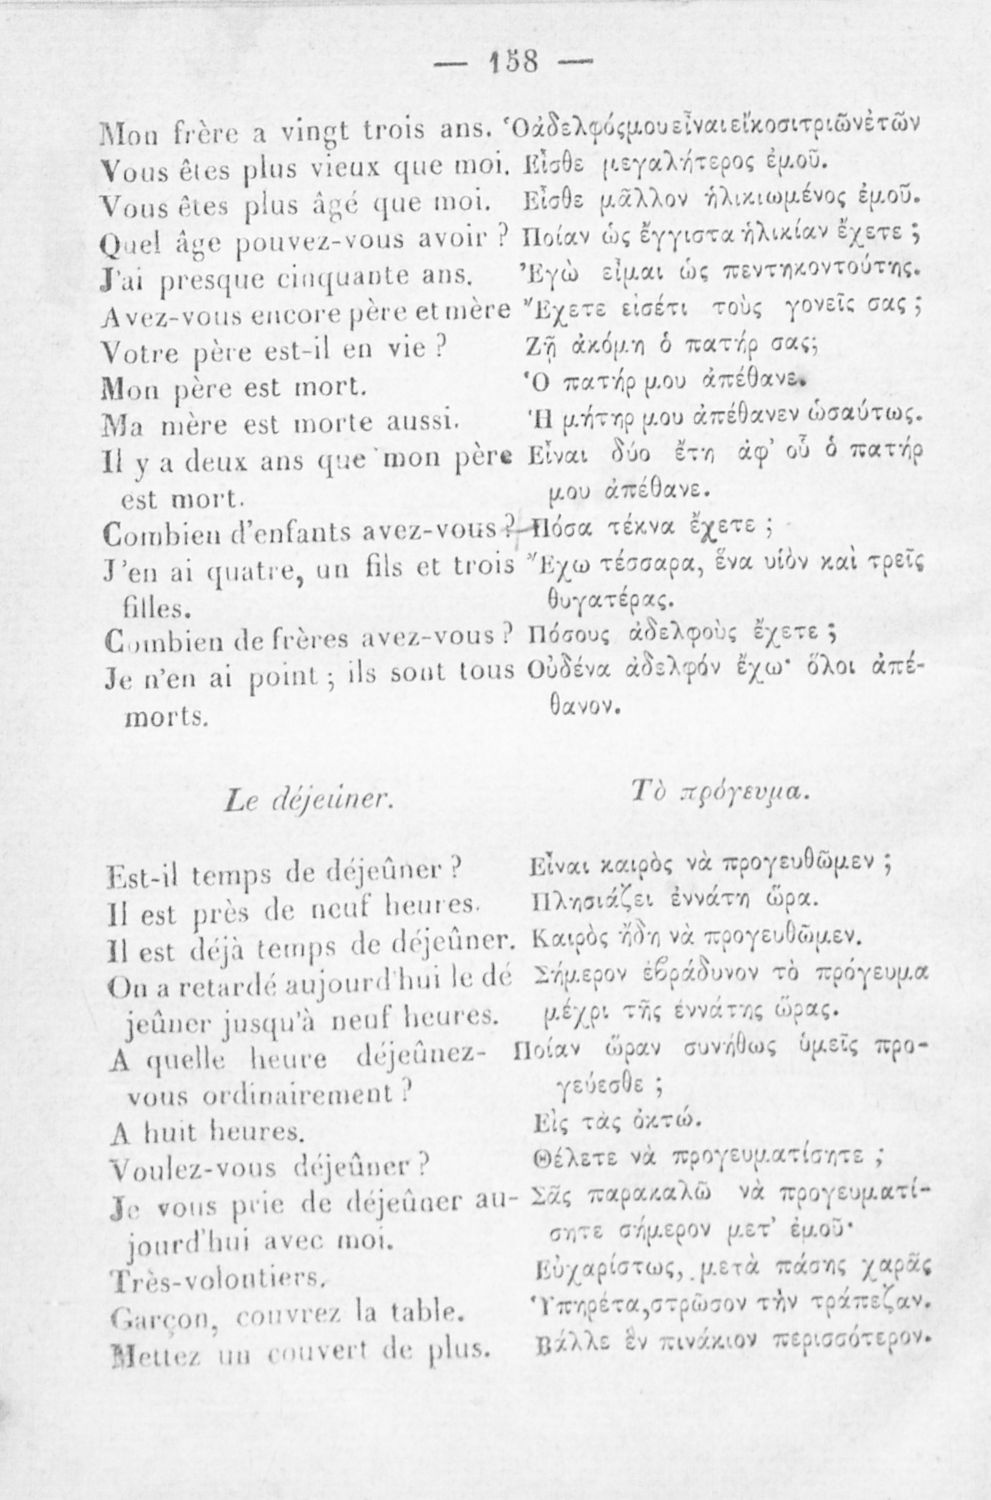 — 158 —
Mon frère a vingt trois ans. Ὁἀδελφόςμουεἶναιεἴκοσιτριῶνἐτῶν
Vous êtes plus vieux que moi. Εἶσθε μεγαλήτερος ἐμοῦ.
Vous êtes plus âgé que moi. Εἶσθε μᾶλλον ἡλικιωμένος ἐμοῦ.
Quel âge pouvez-vous avoir ? Ποίαν ὡς ἔγγιστα ἡλικίαν ἔχετε ;
J'ai presque cinquante ans. Ἐγὼ εἶμαι ὡς πεντηκοντούτης.
Avez-vous encore père et mère Ἔχετε εἰσέτι τοὺς γονεῖς σας ;
Votre père est-il en vie ? Ζῇ ἀκόμη ὁ πατήρ σας;
Mon père est mort. Ὁ πατήρ μου ἀπέθανε.
Ma mère est morte aussi. Ἡ μήτηρ μου ἀπέθανεν ὡσαύτως.
Il y a deux ans que mon père Εἶναι δύο ἔτη ἀφ' οὗ ὁ πατήρ
est mort. μου ἀπέθανε.
Combien d'enfants avez-vous ? Πόσα τέκνα ἔχετε ;
J'en ai quatre, un fils et trois Ἔχω τέσσαρα, ἕνα υἱὸν καὶ τρεῖς
filles. θυγατέρας.
Combien de frères avez-vous ? Πόσους ἀδελφοὺς ἔχετε ;
Je n'en ai point ; ils sont tous Οὐδένα ἀδελφόν ἔχω· ὅλοι ἀπέ-
morts. θανον.
Le déjeûner. Τὸ πρόγευμα.
Est-il temps de déjeûner ? Εἶναι καιρὸς νὰ προγευθῶμεν ;
Il est près de neuf heures. Πλησιάζει ἐννάτη ὥρα.
Il est déjà temps de déjeûner. Καιρὸς ἤδη νὰ προγευθῶμεν.
On a retardé aujourd'hui le dé Σήμερον ἐβράδυνον τὸ πρόγευμα
jeûner jusqu'à neuf heures. μέχρι τῆς ἐννάτης ὥρας.
A quelle heure déjeûnez- Ποίαν ὥραν συνήθως ὑμεῖς προ-
vous ordinairement ? γεύεσθε ;
A huit heures. Εἰς τὰς ὀκτώ.
Voulez-vous déjeûner ? Θέλετε νὰ προγευματίσητε ;
Je vous prie de déjeûner au- Σᾶς παρακαλῶ νὰ προγευματί-
jourd'hui avec moi. σητε σήμερον μετ' ἐμοῦ·
Très-volontiers. Εὐχαρίστως, μετὰ πάσης χαρᾶς
Garçon, couvrez la table. Ὑπηρέτα,στρῶσον τὴν τράπεζαν.
Mettez un couvert de plus. Βάλλε ἓν πινάκιον περισσότερον.